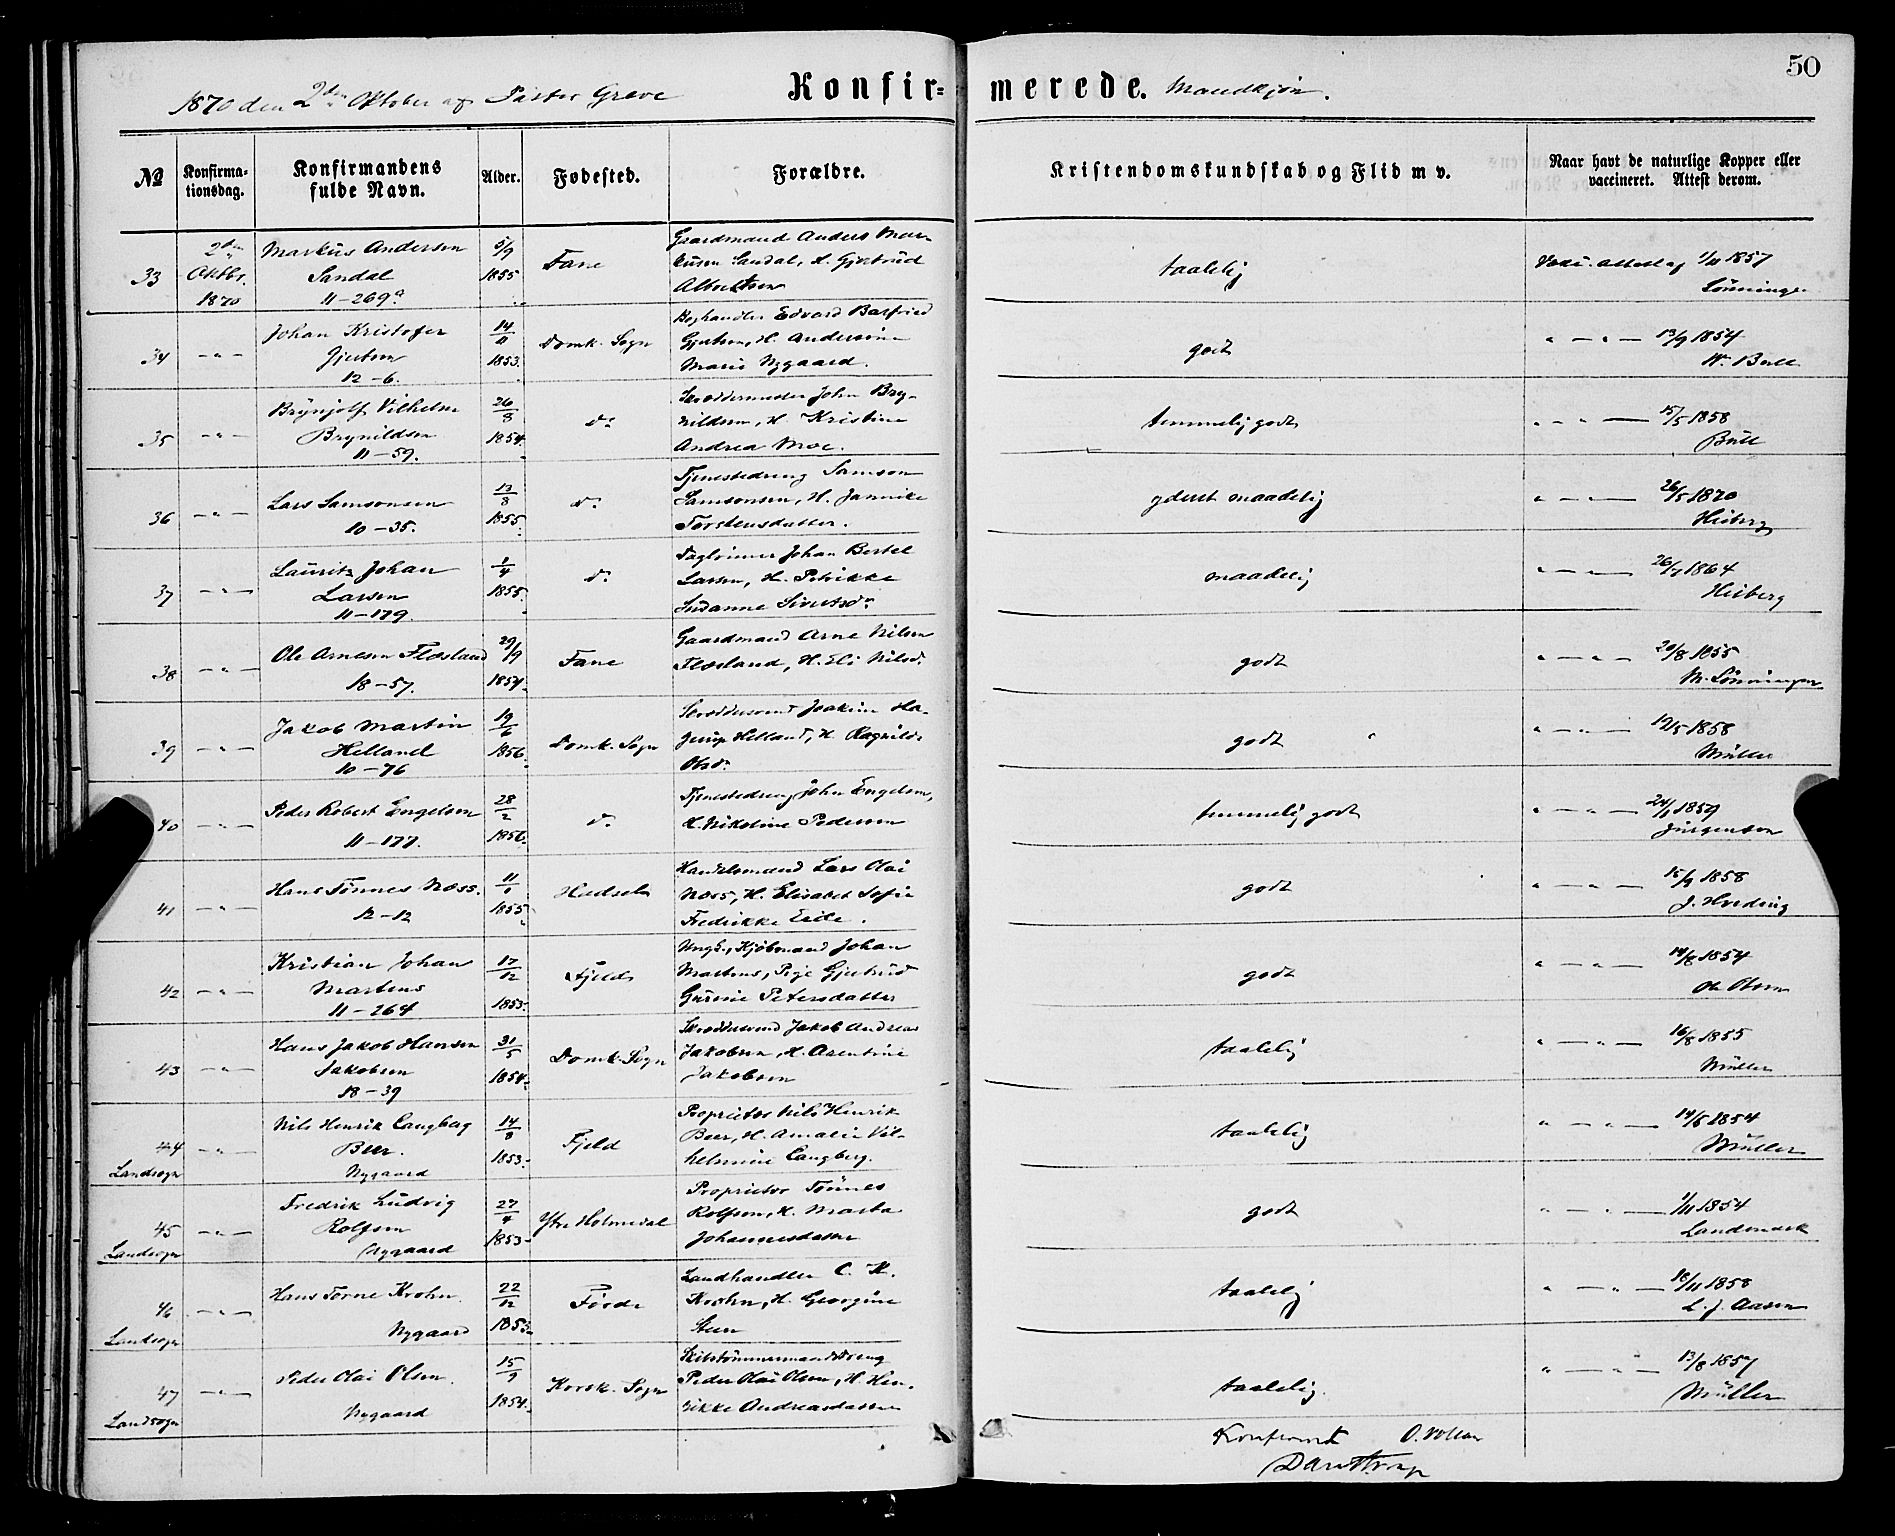 50
1870 den 2den Oktober af Pastor Greve
Konfir= merede. Mandkjøn.
№
Konfirma-
tionsdag.
Konfirmandens
fulde Navn.
Alder.
Fødested.
Forældre.
Kristendomskundskab og Flid m v.
Naar havt de naturlige Kopper eller
vaccineret. Attest derom.
33
2den
Oktbr.
1870
Markus Andersen
Sandal
11-269a
5/9
1855
Fane
Gaardmand Anders Mar-
kusen Sandal, H. Gjertrud
taalelig
Vacc. attest af 1/11 1857
Lönningen
34
Johan Kristofer
Gjertsen
12-6.
14/11
1853.
Domk. Sogn
Boghandler Edvard Barfried
Gjertsen, H. Andersine
Marie Nygaard.
godt
13/9 1854
Bull
35
Brynjolf Vilhelm
Brynildsen
11-59.
26/8
1854.
do
Skreddermester John Bry-
nildsen, H. Kristine
Andrea Moe.
temmelig godt
15/5 1858
Bull
36
Lars Samsonsen
10-35.
13/8
1855.
do
Tjenestedreng Samson
Samsonsen, H. Jannike
Torstensdatter.
yderst maadelig
26/5 1870
Heiberg
37
Lauritz Johan
Larsen
11-179.
1/4
1855.
do
Dagleinner Johan Bertel
Larsen, H. Petrikke
Susanne Sivertsdr
maadelig
26/7 1864
Heiberg
38
Ole Arnesen Flæsland
18-57.
29/9
1854.
Fane
Gaardmand Arne Nilsen
Flæsland, H. Eli Nilsd.
godt
20/8 1855
M. Lönningen
39
Jakob Martin
Helland
10-76
19/6
1856.
Domk. Sogn
Skreddersvend Joakim Ha-
gerup Helland, H. Ragnilde
Olsdr
godt
19/5 1858
Müller
40
Peder Robert Engelsen
11-177.
28/2
1856.
do
Tjenestedreng John Engelsen,
H. Nikoline Pedersen
temmelig godt
1859
Jürgensen
41
Hans Tönnes Næss.
12-12
11/1
1855.
Hadsel
Handelsmand Lars Olai
Næss, H. Elisabet Sofie
Fredrikke
godt
15/9 1858
J. Hveding
42
Kristian Johan
Martens
11-264
17/12
1853.
Fjeld
Ungk., Kjöbmand Johan
Martens, Pige Gjertrud
Gurine Petersdatter
godt
14/8 1854
Ole Olsen
43
Hans Jakob Hansen
Jakobsen
18-39
31/5
1854.
Domk. Sogn
Skreddersvend Jakob Andreas
Jakobsen, H. Arentine
Jakobsen
taalelig
16/8 1855
Müller
44
Landsogn
Nils Henrik Langberg
Beer.
Nygaard
14/8
1853.
Fjeld
Proprietær Nils Henrik
Beer, H. Amalie Vil-
helmine Langberg.
taalelig
14/6 1854
Müller
45
Landsogn
Fredrik Ludvig
Rolfsen
Nygaard
27/4
1853.
Ytre Holmedal
Proprietær Tönnes
Rolfsen, H. Marta
Johannesdatter
godt
1/11 1854
Landmark
46
Landsogn
Hans Törne Krohn.
Nygaard
22/12
1853.
Förde
Landhandler C. K.
Krohn, H. Georgine
Steen
taalelig
18/11 1858
L. J. Aasen
47
Landsogn
Peder Olai Olsen.
Nygaard
15/9
1854.
Korsk. Sogn
Skibstömmermandsdreng
Peder Olai Olsen, H. Hen-
rikke Andreasdatter
taalelig.
13/8 1857
Müller
Konfereret O. Vollan